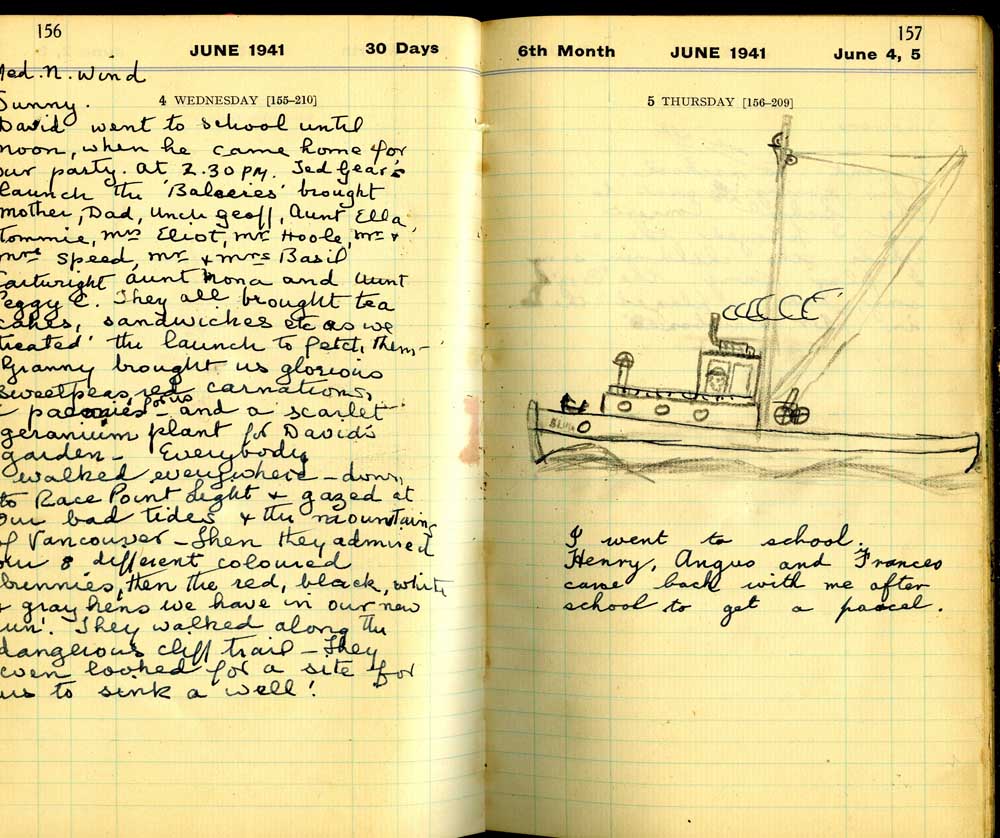 156
JUNE 1941 30 Days
Med. N. Wind
Sunny.
4 WEDNESDAY [155–210]
David went to school until
noon, when he came home for
our party. At 2.30 P.M. Ted Gear's
launch the brought
mother, Dad, Uncle Geoff, Aunt Ella
Tommie, Mrs Eliot, Mr Hoole, Mr &
Mrs Speed, Mr & Mrs Basil
Cartwright Aunt Mona and Aunt
Peggy C. They all brought tea
cakes, sandwiches etc as we
'treated' the launch to fetch them –
Granny brought us glorious
sweetpeas, red carnations,
for us
& paeonies – and a scarlet
geranium plant for David's
garden – Everybody
walked everywhere – down
to Race Point Light & gazed at
our bad tides & the mountains
of Vancouver – Then they admired
our 8 different coloured
bunnies, then the red, black, white
& gray hens we have in our new
'run'. They walked along the
dangerous cliff trail – They
even looked for a site for
us to sink a well!
157
6th Month JUNE 1941 June 4, 5
5 THURSDAY [156–209]
I went to school.
Henry, Angus and Frances
came back with me after
school to get a parcel.